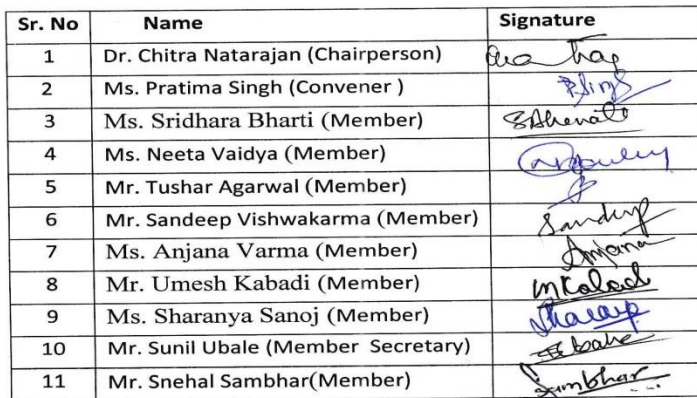 Sr. No Name Signature
1 Dr. Chitra Natarajan (Chairperson)
2 Ms. Pratima Singh (Convener ) PSingh
3 Ms. Sridhara Bharti (Member)
4 Ms. Neeta Vaidya (Member)
5 Mr. Tushar Agarwal (Member)
6 Mr. Sandeep Vishwakarma (Member) Sandeep
7 Ms. Anjana Varma (Member) Anjana
8 Mr. Umesh Kabadi (Member)
9 Ms. Sharanya Sanoj (Member)
10 Mr. Sunil Ubale (Member Secretary)
11 Mr. Snehal Sambhar(Member) Sambhar